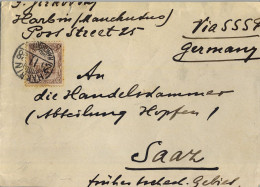 Harbin (Manchukuo)
Post Street 25
Via SSSR
Germany
An
die Handelskammer
(Abteilung Hopfen)
Saaz
früher tschech. Gebiet